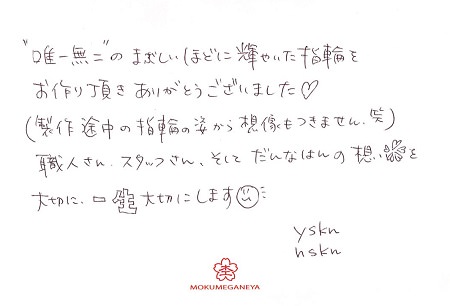 "唯一無二"のまぶしいほどに輝やいた指輪を
お作り頂きありがとうございました♡
(製作途中の指輪の姿から想像もつきません。笑)
職人さん、スタッフさん、そしてだんなはんの想いを
大切に、一生大切にします
yskn
hskn
MOKUMEGANEYA